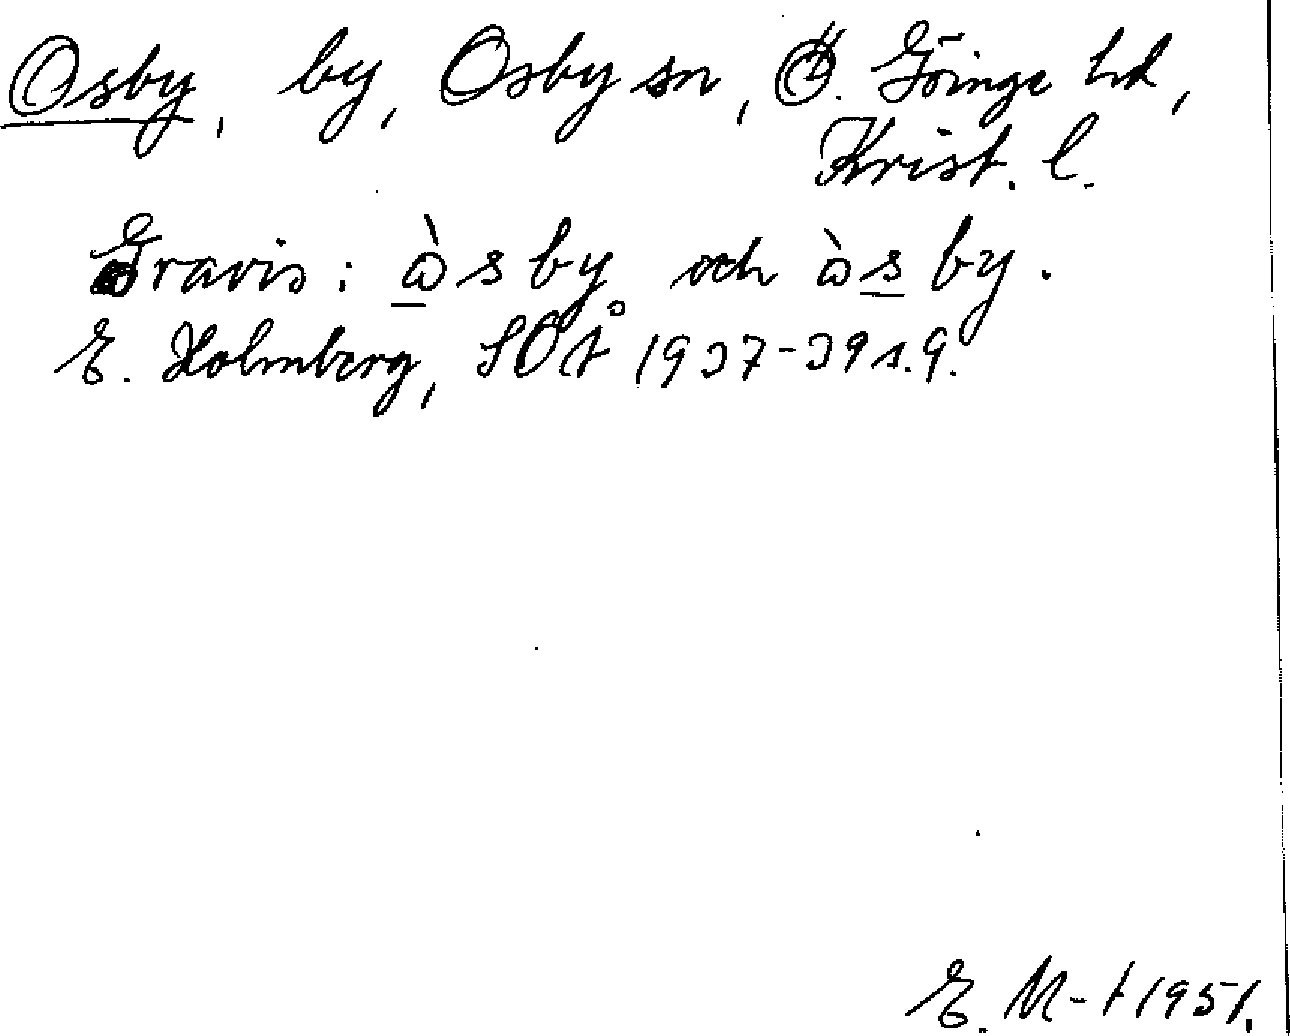 Osby, by, Osby sn, Ö. Göinge hd,
Krist. l.
Gravis: ὼsby och ὼsby.
E. Holmberg, SOÅ 1937-39 s. 9.
E. M-t 1951.